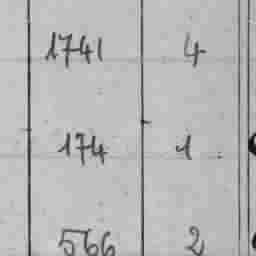 1741 4
174 1
566 2